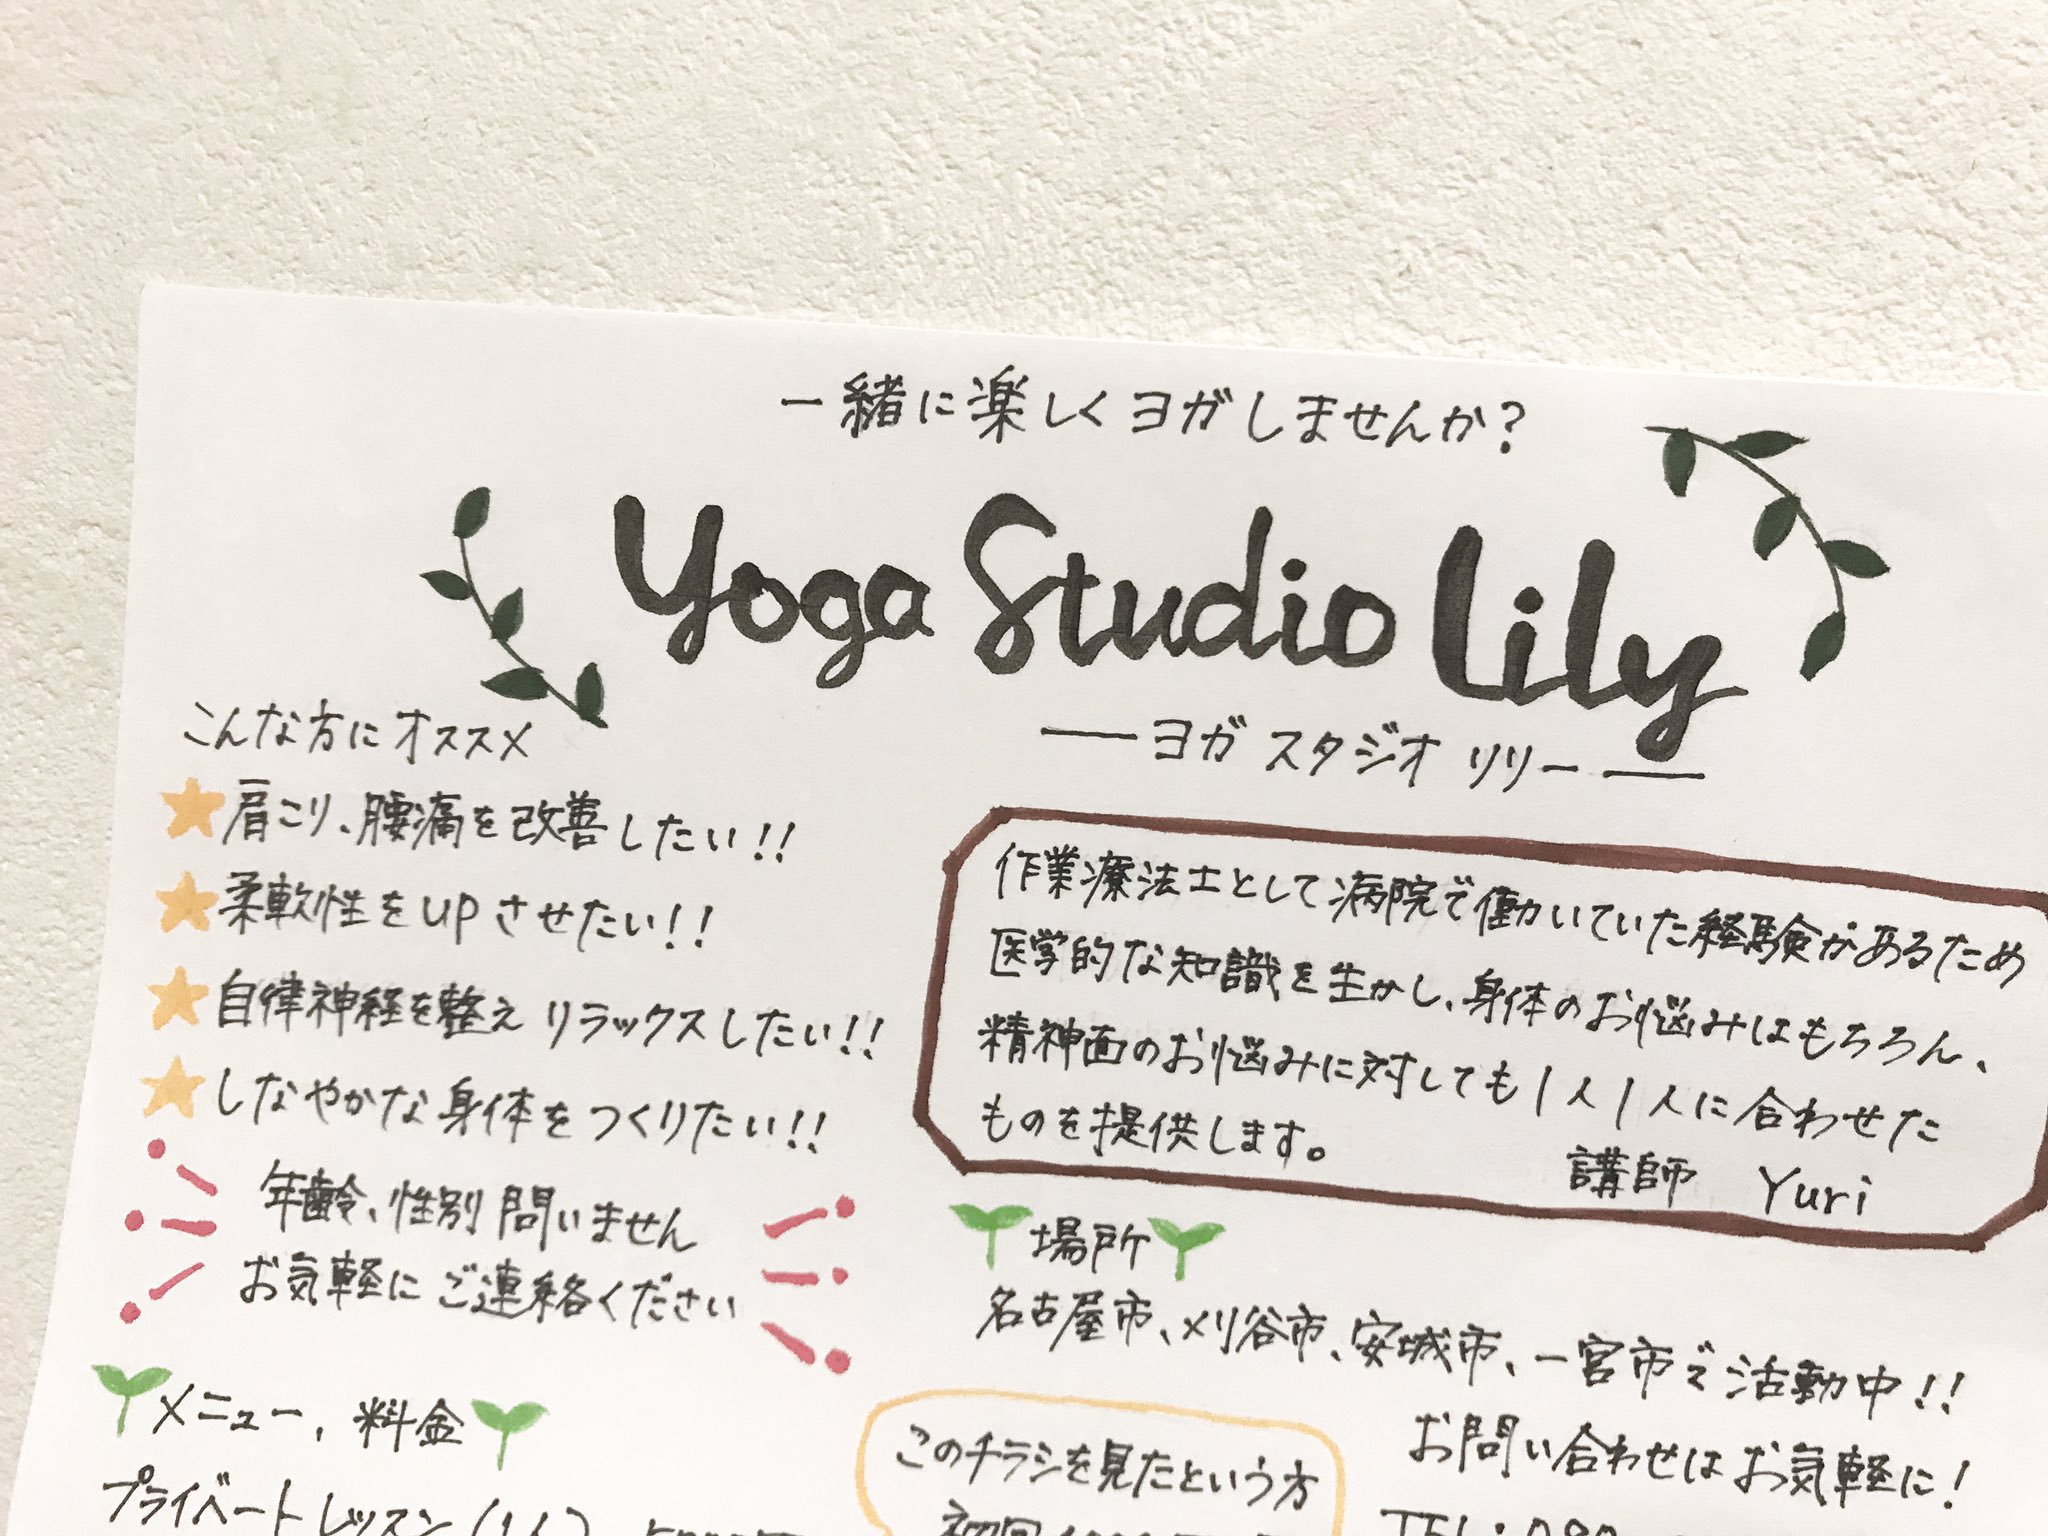 一緒に楽しくヨガしませんか?
Yoga Studio lily
ヨガ スタジオ リリー
こんな方にオススメ
肩こり、腰痛を改善したい!!
柔軟性をUPさせたい!!
自律神経を整え リラックスしたい!!
しなやかな身体をつくりたい!!
年齢、性別 問いません
お気軽に ご連絡ください
作業療法士として病院で働いていた経験があるため
医学的な知識を生かし、身体のお悩みはもちろん、
精神面のお悩みに対しても1人1人に合わせた
ものを提供します。
講師 Yuri
場所
名古屋市、刈谷市、安城市、一宮市で活動中!!
お問い合わせはお気軽に!
メニュー、料金
プライベートレッスン(1人)
このチラシを見たという方
初回
TEL:080